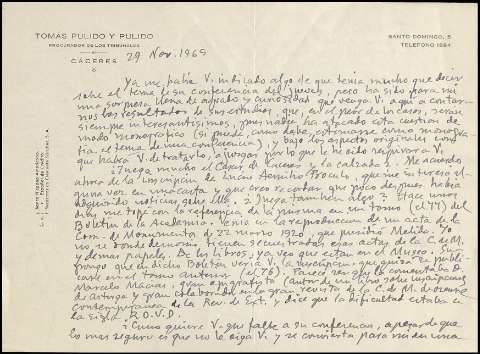 TOMAS PULIDO Y PULIDO
PROCURADOR DE LOS TRIBUNALES
CÁCERES
SANTO DOMINGO, 5
TELEFONO 1884
29 Nov. 1969
Ya me había V. indicado algo de que tenía mucho que decir
sobre el tema de su conferencia del jueves, pero ha sido para mi
una sorpresa llena de agrado y curiosidad que venga V. aquí a contar-
nos los resultados de sus estudios, que, en el peor de los casos, serán
siempre interesantísimos, pues nadie ha atacado esta cuestión de
modo monográfico (si puede, como debe, estimarse como monogra-
fía el tema de una conferencia), y bajo los aspectos originales con
que habrá V. de tratarlo, a juzgar por lo que he oído referir a V.
¿Juega mucho el Caesar de Cáceres y la calzada? Me acuerdo
ahora de la inscripción de Lucio Aemilio Proculo, que me interesó al-
guna vez en una carta y que creo recordar que poco después había
adquirido noticias sobre ella. ¿Juega también algo? Hace unos
días me tope con la referencia de la misma en un tomo (el 77) del
Boletín de la Academia. Venía en la reproducción de un acta de la
Com. de Monumentos de 22 marzo 1920, que presidió Mélida. Yo
no se donde demonios tienen secuestradas esas actas de la C. de M.
y demás papeles. De los libros, ya veo que están en el Museo. Su-
pongo que en dicho Boletín vería V. la inscripción, que quizá se publi-
case en el tomo anterior (el 76). Parece ser que la comentaba D.
Marcelo Macías, gran epigrafista (autor de un libro sobre inscripciones
de Astorga y gran colaborador en la gran revista de la C. de M. de Orense,
contemporánea de la Rev. de Ext., y dice que la dificultad estaba en
la sigla R.O.V.D.
¿Cómo quiere V. que falte a su conferencia, a pesar de que
lo más seguro es que no le oiga V. y se convierta para mi en una